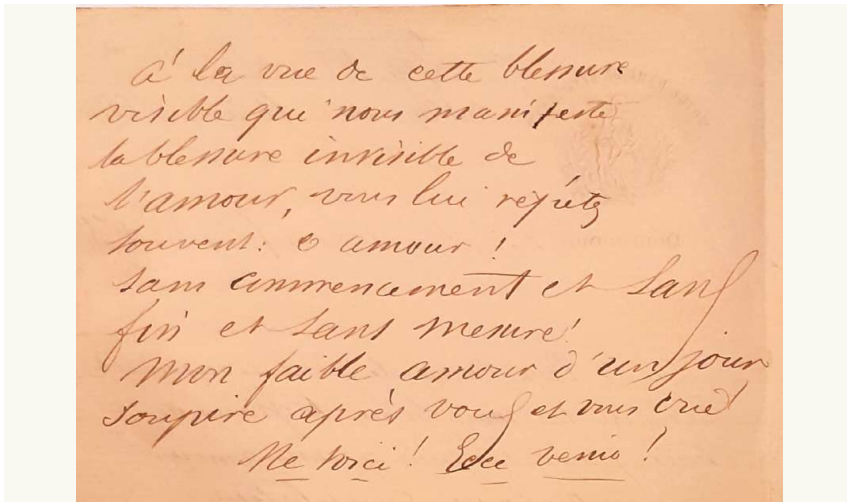 À la vue de cette blessure
visible qui nous manifeste
la blessure invisible de
l'amour, vous lui répétez
souvent: O amour !
sans commencement et sans
fin et sans mesure !
Mon faible amour d'un jour
soupire après vous et vous crie !
Me voici ! Ecce venio !